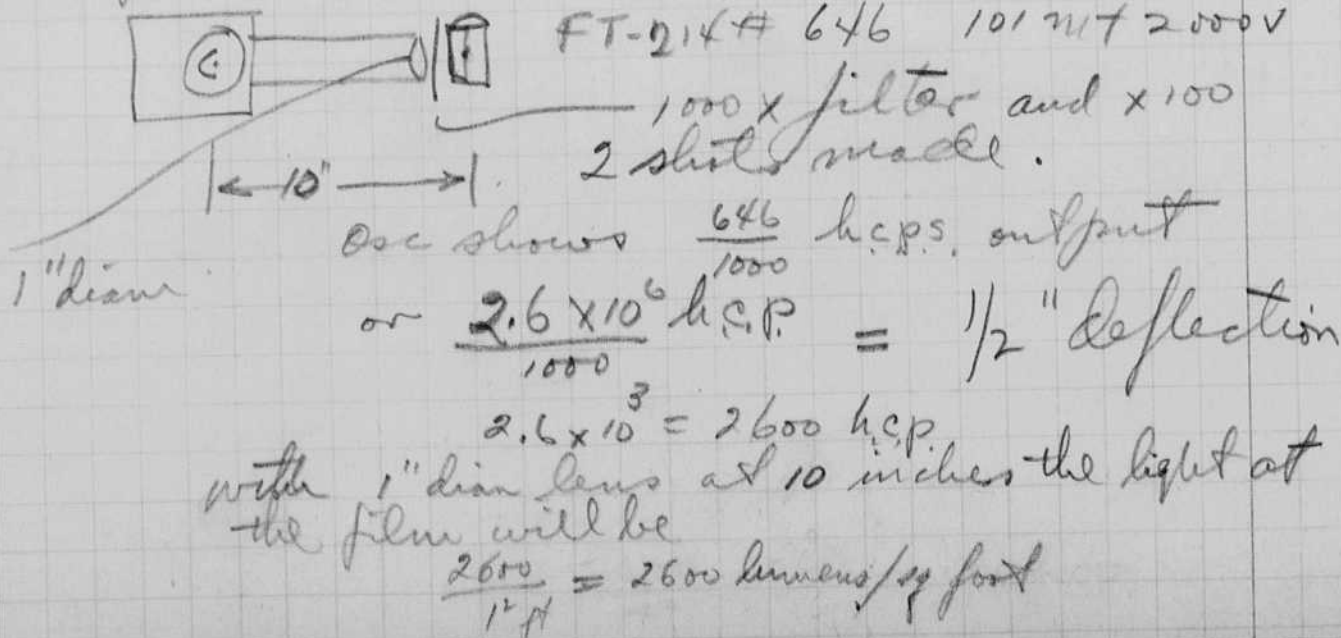 FT-214# 646 101 mf 2000V
1000 x filter and x100
2 shots made.
10"
Osc shows 646/1000 h.c.p.s. output
1" diam
or 2.6 x 10^6/1000 h.c.p. = 1/2" deflection
2.6 x 10^3 = 2600 h.c.p.
with 1" diam lens at 10 inches the light at
the film will be
2600/1^2 ft = 2600 lumens/sq foot